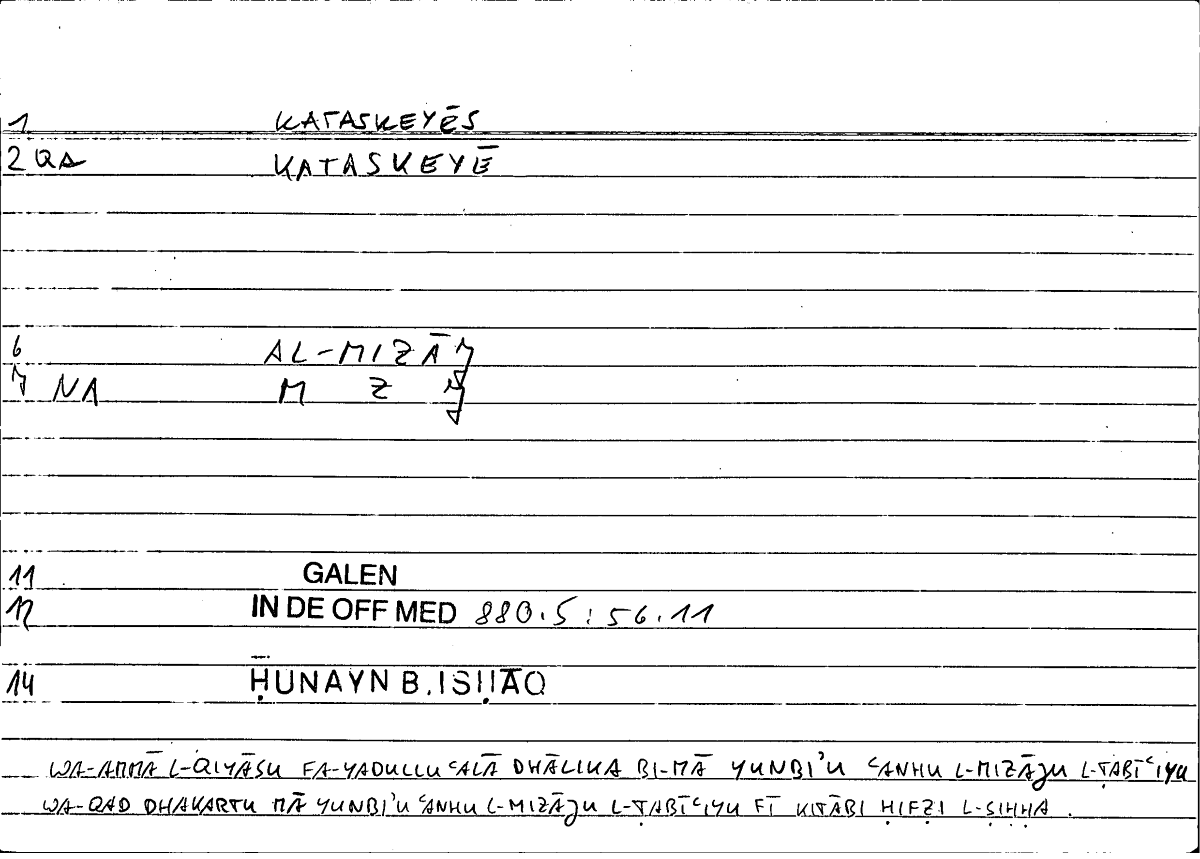 1 KATASKEYĒS
2 QA KATASKEYĒ
6 AL-MIZĀǦ
7 NA M Z Ǧ
11 GALEN
12 IN DE OFF MED 880.5 : 56.11
14 ḤUNAYN B. ISḤĀQ
WA-AMMĀ L-QIYĀSU FA-YADULLU ʿALĀ DHĀLIKA BI-MĀ YUNBIʾU ʿANHU L-MIZĀǦU L-ṬABĪʿIYU
WA-QAD DHAKARTU MĀ YUNBIʾU ʿANHU L-MIZĀǦU L-ṬABĪʿIYU FĪ KITĀBI ḤIFẒI L-ṢIḤḤA.